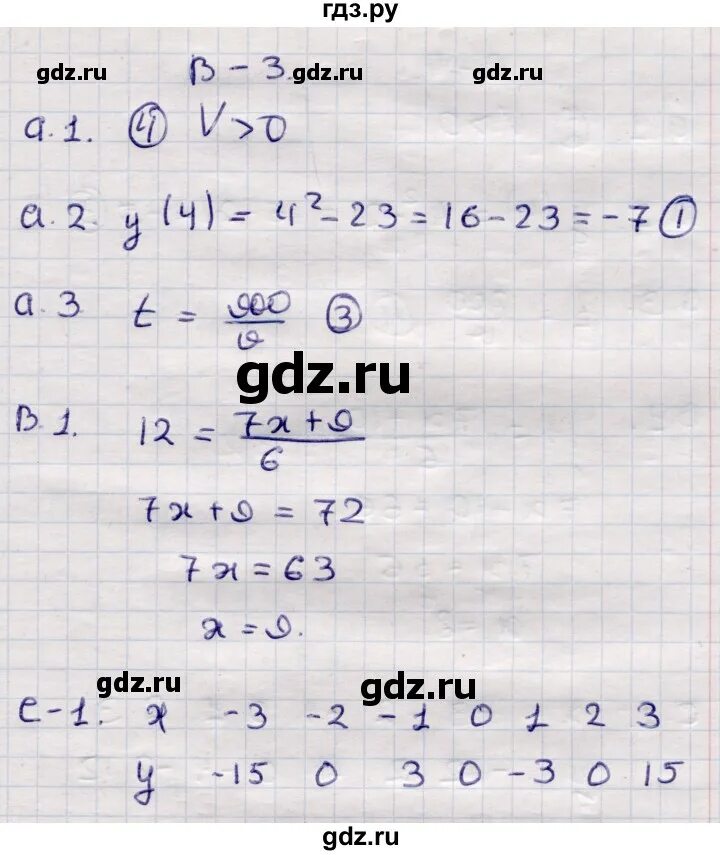 гдз.ру
В - 3
gdz.ru gdz.ru gdz.ru
а.1. ④ V>0
а.2. y(4) = 4² - 23 = 16 - 23 = -7 ①
а.3 t = 900/υ ③
gdz.ru
В.1. 12 = (7x + 9)/6
7x + 9 = 72
7x = 63
x = 9.
gdz.ru gdz.ru
с-1. x -3 -2 -1 0 1 2 3
y -15 0 3 0 -3 0 15
gdz.ru